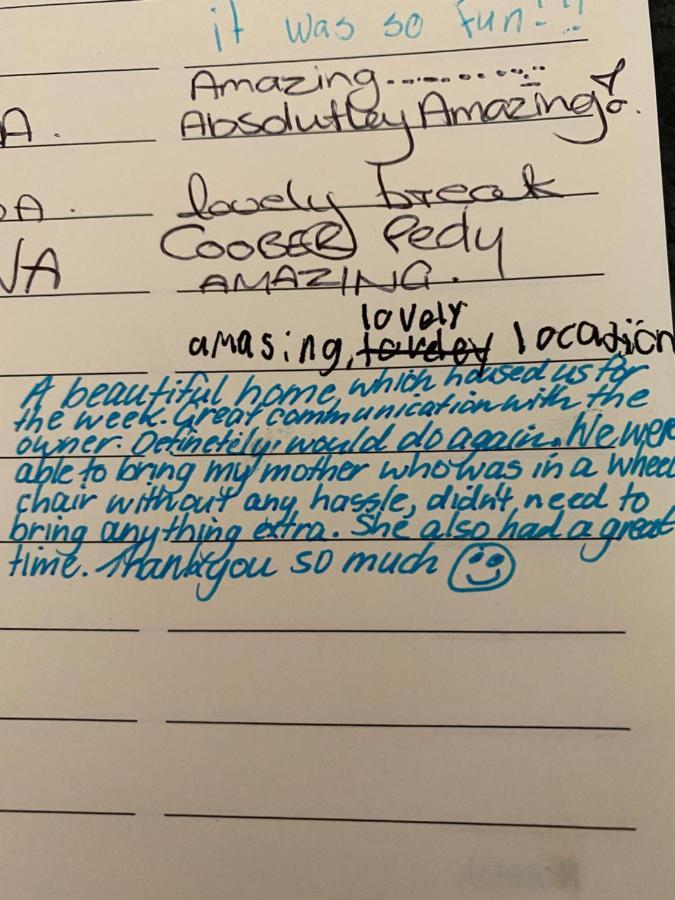 it was so fun!!
Amazing...........
A. Absolutley Amazing
A. lovely break
COOBER Pedy
AMAZING.
lovely
amasing, location
A beautiful home, which housed us for
the week. Great communication with the
owner. Definetely would do again. We were
able to bring my mother who was in a wheel
chair without any hassle, didn't need to
bring anything extra. She also had a great
time. Thankyou so much